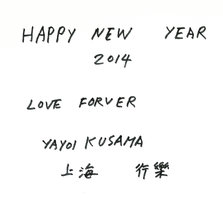 HAPPY NEW YEAR
2014
LOVE FORVER
YAYOI KUSAMA
上海 行樂